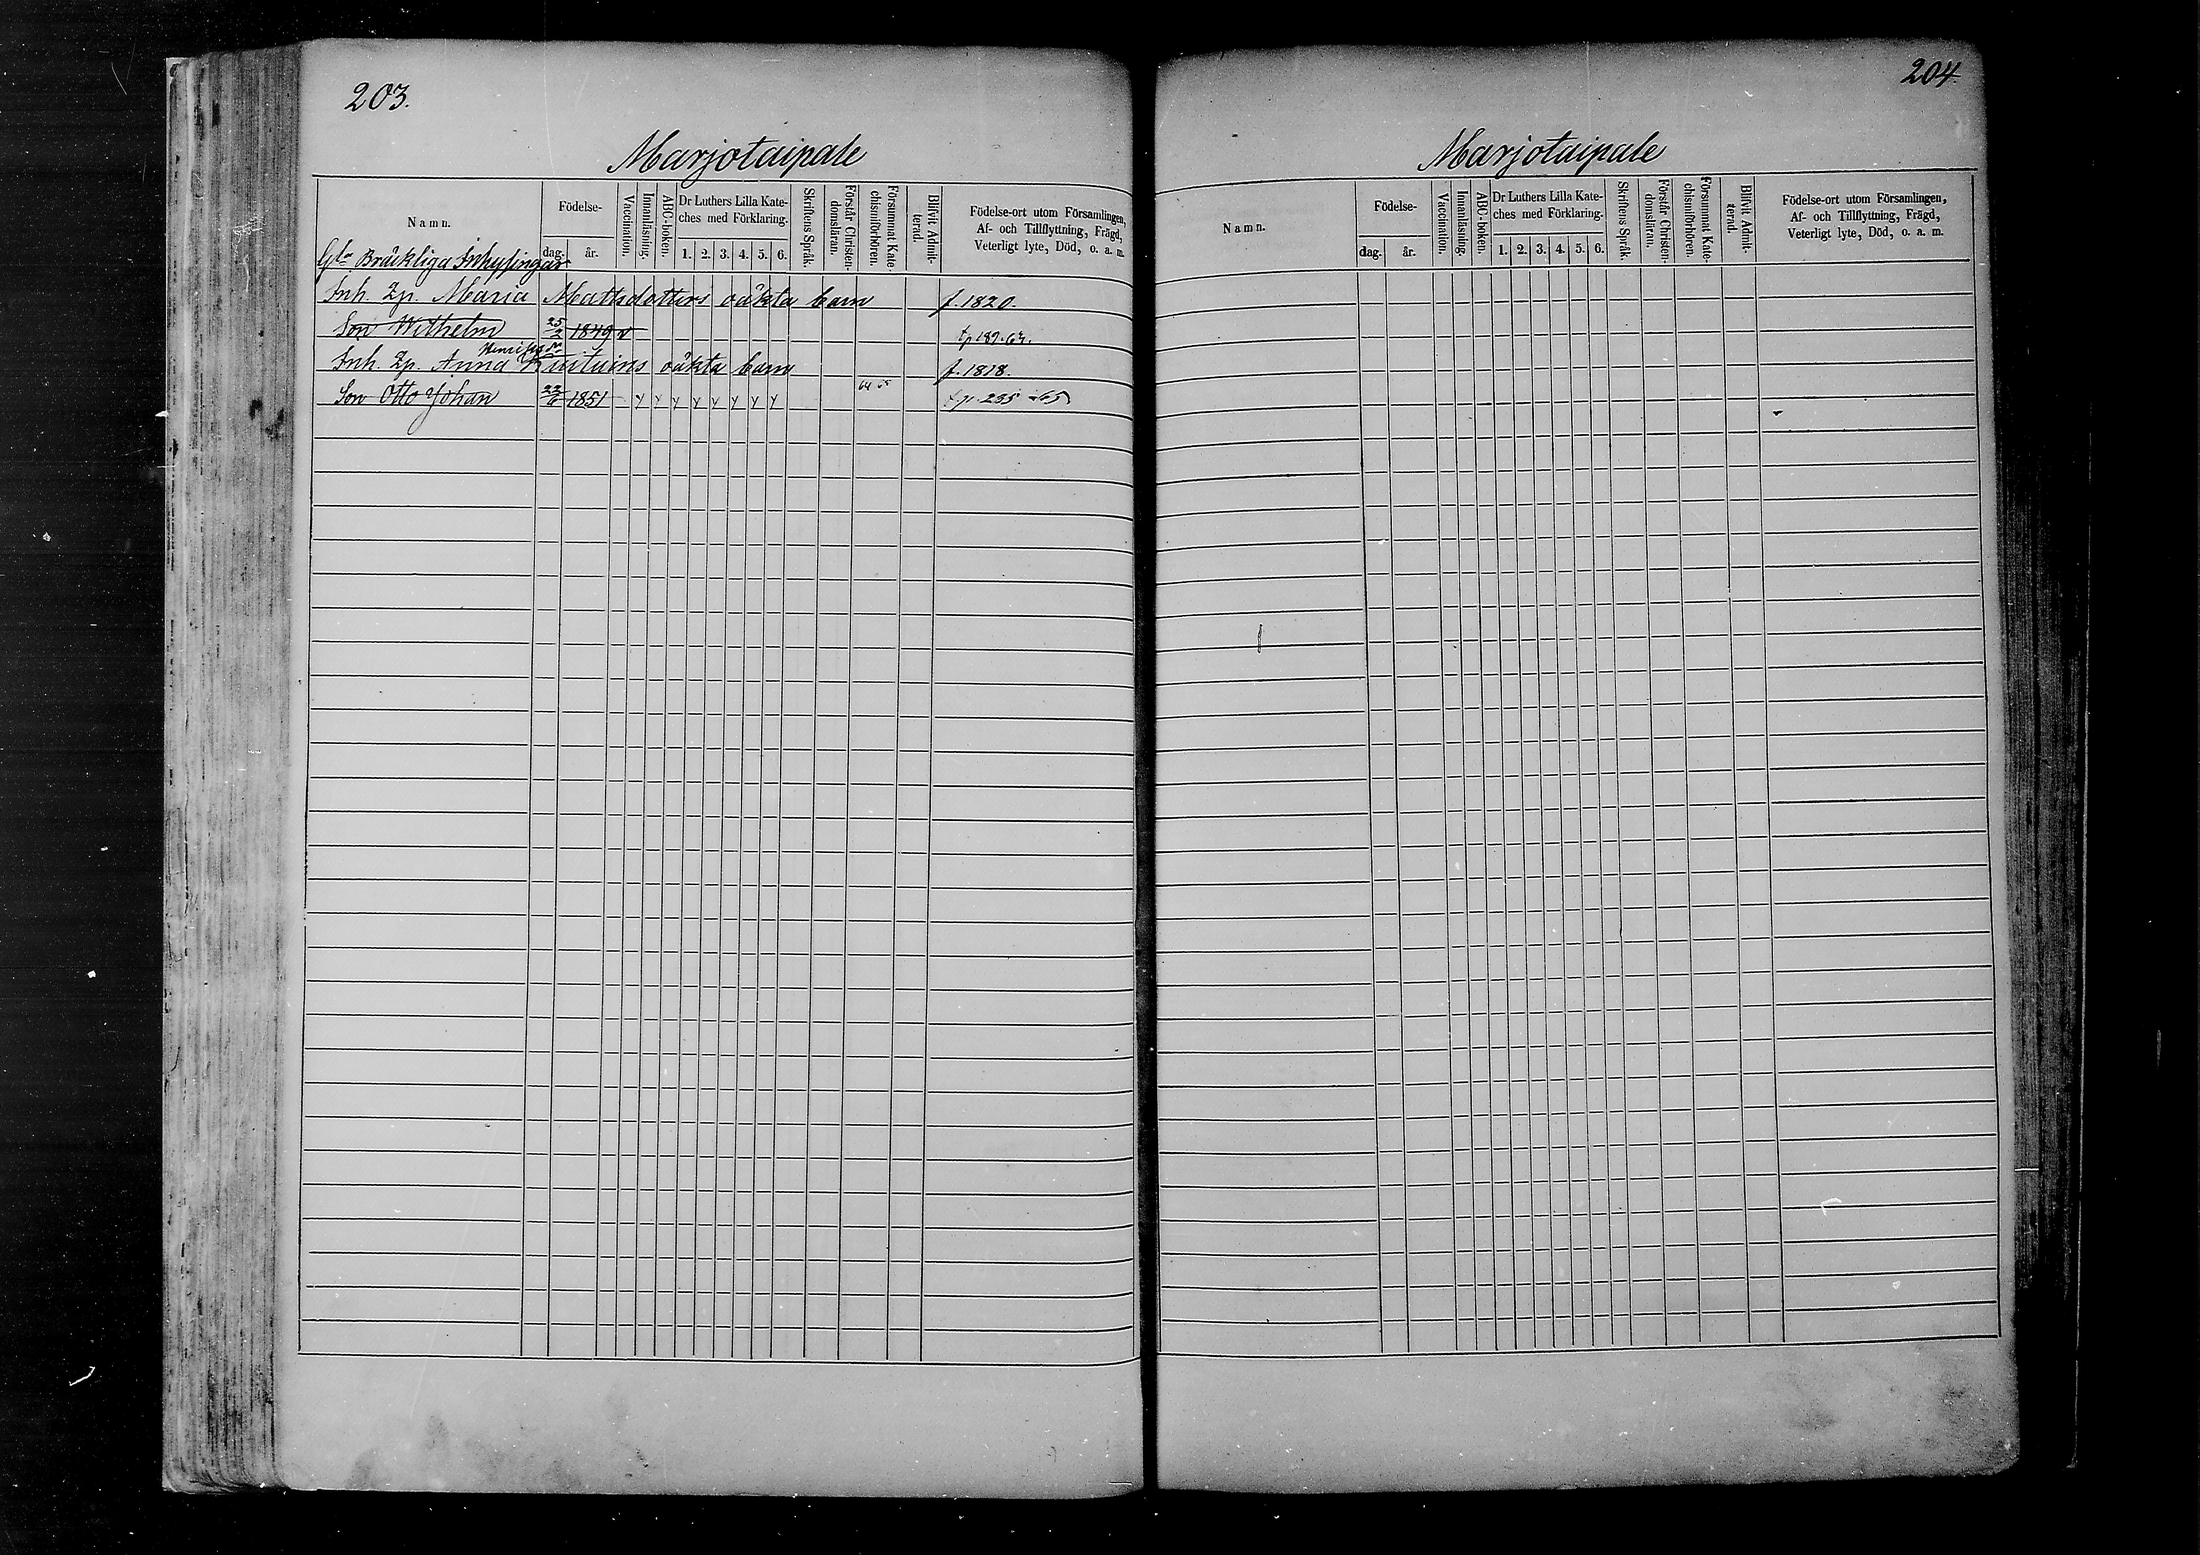 203.
Marjotaipale
Namn.
Födelse-
dag.
år.
Vaccination.
Innanläsning.
ABC-boken.
Dr Luthers Lilla Kate-
ches med Förklaring.
1. 2. 3. 4. 5. 6.
Skriftens Språk.
Förstår Christen-
domsläran.
Försummat Kate-
chismiförhören.
Blifvit Admit-
terad.
Födelse-ort utom Församlingen,
Af- och Tillflyttning, Frägd,
Veterligt lyte, Död, o. a. m.
Bräckliga Inhysingar
Inh. Zp. Maria Mattsdotters oäkta barn f. 1820.
Son Wilhelm 25/2 1849 v
Inh. Zp. Anna oäkta barn f. 1818.
Son Otto Johan 1851 y y y y y y y y 235
204.
Marjotaipale
Namn.
Födelse-
dag.
år.
Vaccination.
Innanläsning.
ABC-boken.
Dr Luthers Lilla Kate-
ches med Förklaring.
1. 2. 3. 4. 5. 6.
Skriftens Språk.
Förstår Christen-
domsläran.
Försummat Kate-
chismiförhören.
Blifvit Admit-
terad.
Födelse-ort utom Församlingen,
Af- och Tillflyttning, Frägd,
Veterligt lyte, Död, o. a. m.